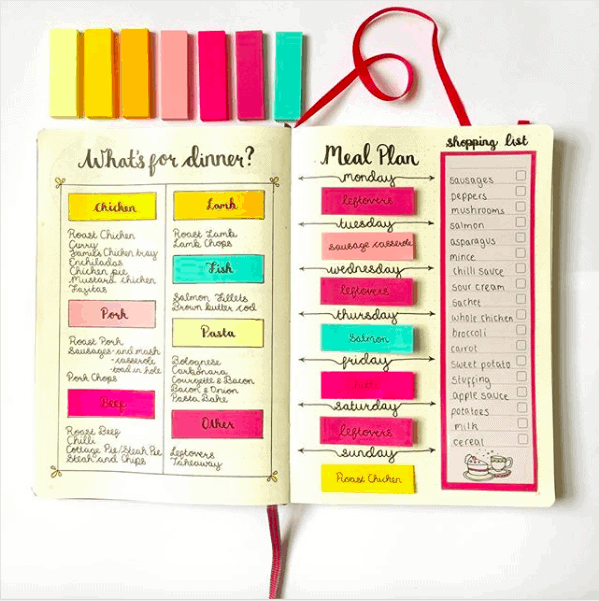 What's for dinner?
Chicken
Roast Chicken
Curry
Jamie's Chicken tray
Enchiladas
Chicken pie
Mustard chicken
Fajitas
Pork
Roast Pork
Sausages - and mash
- casserole
- toad in hole
Pork Chops
Beef
Roast Beef
Chilli
Cottage Pie/Steak Pie
Steak and Chips
Lamb
Roast Lamb
Lamb Chops
Fish
Salmon Fillets
Brown butter cod
Pasta
Bolognese
Carbonara
Courgette & Bacon
Bacon & Onion
Pasta Bake
Other
Leftovers
Takeaway
Meal Plan
monday
leftovers
tuesday
sausage casserole
wednesday
leftovers
thursday
Salmon
friday
saturday
leftovers
sunday
Roast Chicken
shopping list
sausages
peppers
mushrooms
salmon
asparagus
mince
chilli sauce
sour cream
sachet
whole chicken
broccoli
carrot
sweet potato
stuffing
apple sauce
potatoes
milk
cereal